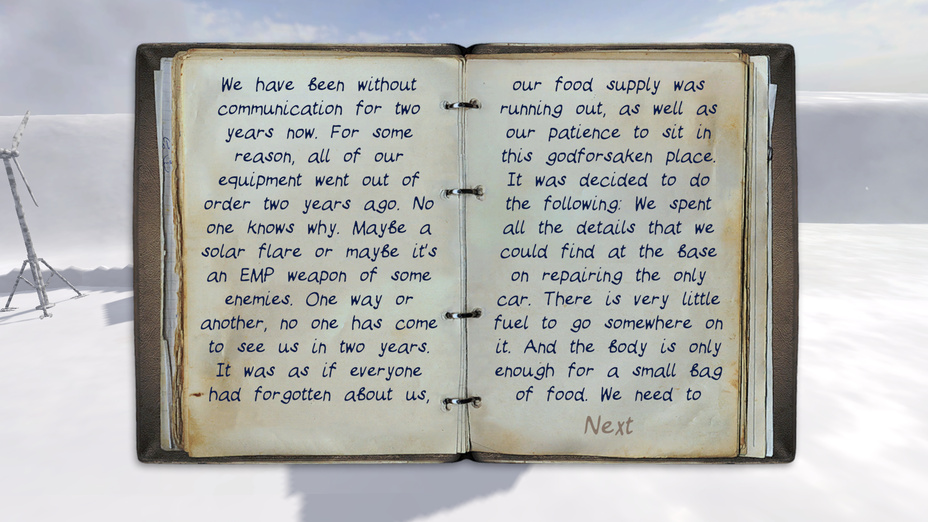 We have been without
communication for two
years now. For some
reason, all of our
equipment went out of
order two years ago. No
one knows why. Maybe a
solar flare or maybe it's
an EMP weapon of some
enemies. One way or
another, no one has come
to see us in two years.
It was as if everyone
had forgotten about us,
our food supply was
running out, as well as
our patience to sit in
this godforsaken place.
It was decided to do
the following: We spent
all the details that we
could find at the base
on repairing the only
car. There is very little
fuel to go somewhere on
it. And the body is only
enough for a small bag
of food. We need to
Next